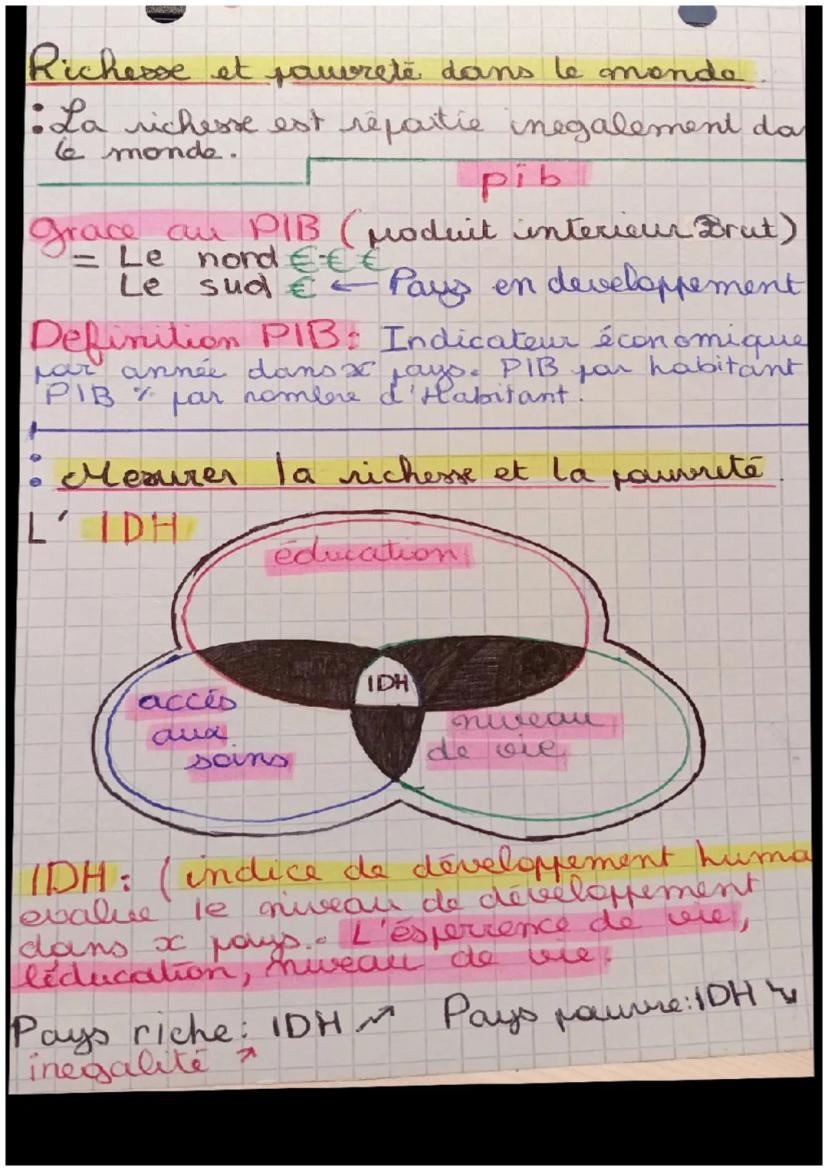 Richesse et pauvreté dans le monde.
: La richesse est répartie inegalement da
le monde.
pib
Grace au PIB (produit interieur Brut)
= Le nord €-€-€
Le sud € ← Pays en developpement
Definition PIB: Indicateur économique
par année dans x pays. PIB par habitant
PIB % par nombre d'Habitant.
: Mesurer la richesse et la pauvreté.
L' IDH
éducation
IDH
accés
aux
soins
niveau
de vie
IDH: (indice de développement huma
evalue le niveau de développement
dans x pays.. L'ésperence de vie,
léducation, niveau de vie.
Pays riche: IDH ↗ Pays pauvre: IDH ↘
inegalité ↗